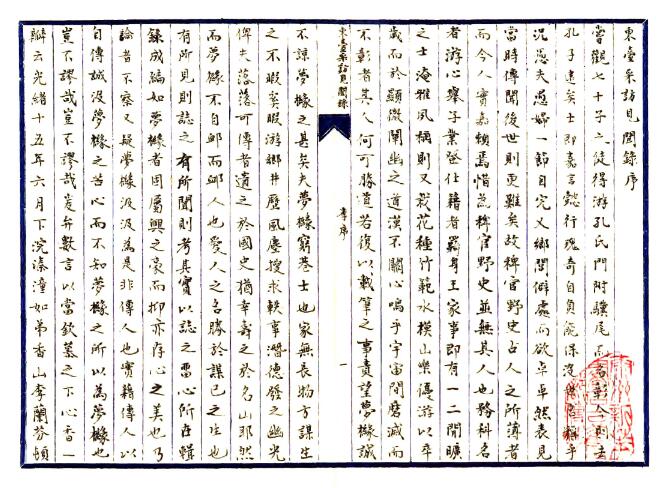 東臺采訪見聞錄序
嘗觀七十子之徒得游孔氏門附驥尾而名彰今則去
孔子遠矣士即嘉言懿行瑰奇自負能保沒
況愚夫愚婦一節自完又鄉閭僻處而欲卓卓然表見
當時傳聞後世則更難矣故稗官野史古人之所薄者
而今人實嘉賴焉惜為稗官野史並無其人也務科名
者游心舉子業登仕籍者羈身王家事即有一二閒曠
之士淹雅風稱則又栽花種竹範水模山樂優游以卒
歲而於顯微闡幽之道漠不關心嗚乎宇宙間磨滅而
不彰者其人何可勝道若復以載筆之事責望夢椽誠
東臺采訪見聞錄
李序
一
不諒夢椽之甚矣夫夢椽窮巷士也家無長物方謀生
之不暇奚暇游鄉井歷風塵搜求軼事潛德發之幽光
俾夫落落可傳者遺之於國史猶幸壽之於名山耶然
而夢椽不自卹而卹人也愛人之名勝於謀己之生也
有所見則誌之有所聞則考其實以誌之雷心所在輯
錄成編如夢椽者固屬興之豪而抑亦存心之美也乃
論者不察又疑夢椽汲汲為是非傳人也實藉傳人以
自傳誠沒夢椽之苦心而不知夢椽之所以為夢椽也
豈不謬哉豈不謬哉爰弁數言以當欽慕之下心香一
瓣云光緒十五年六月下浣溱潼如弟香山李蘭芬頓